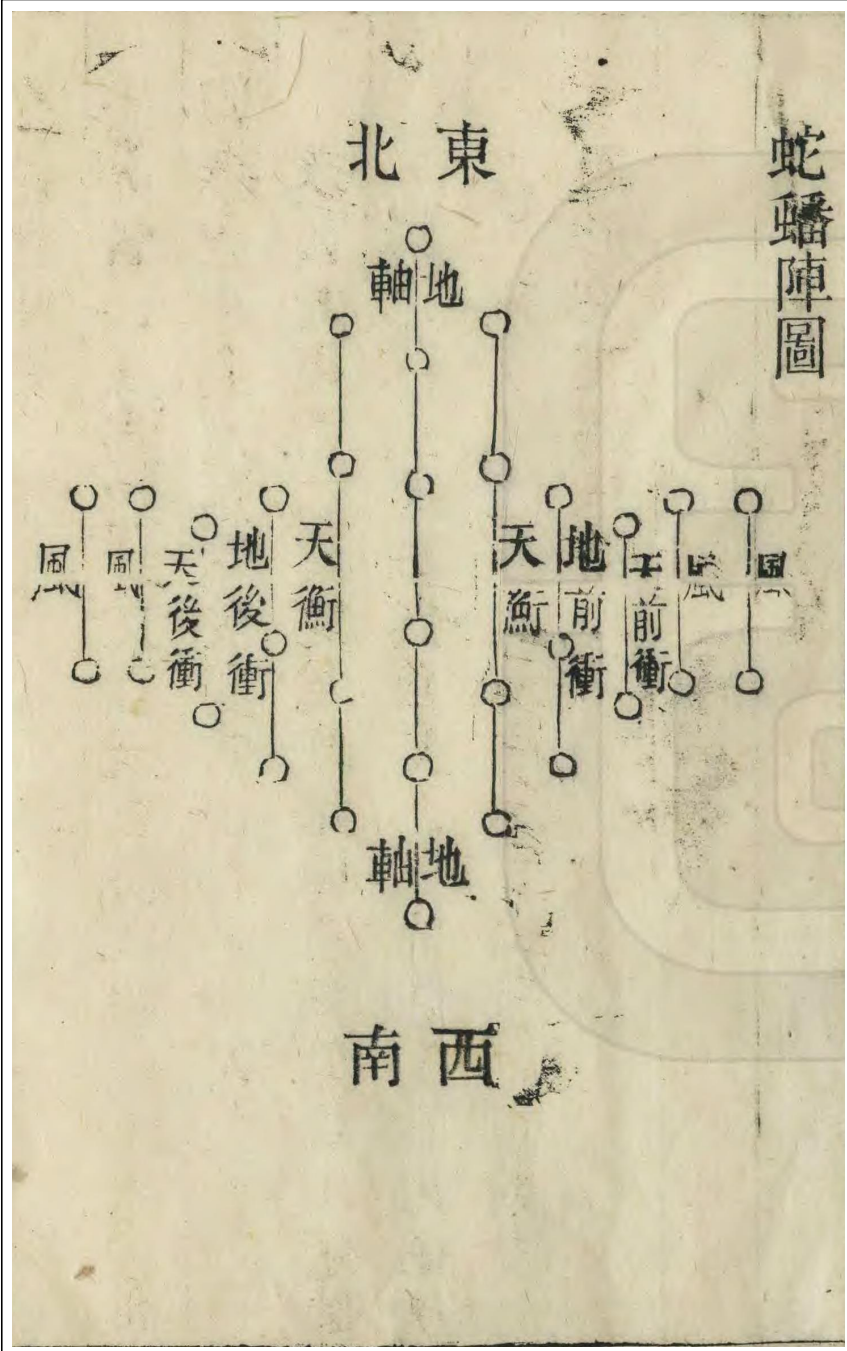 蛇蟠陣圖
東北
地軸
風
風
天前衝
地前衝
天衡
天衡
地後衝
天後衝
風
風
地軸
西南